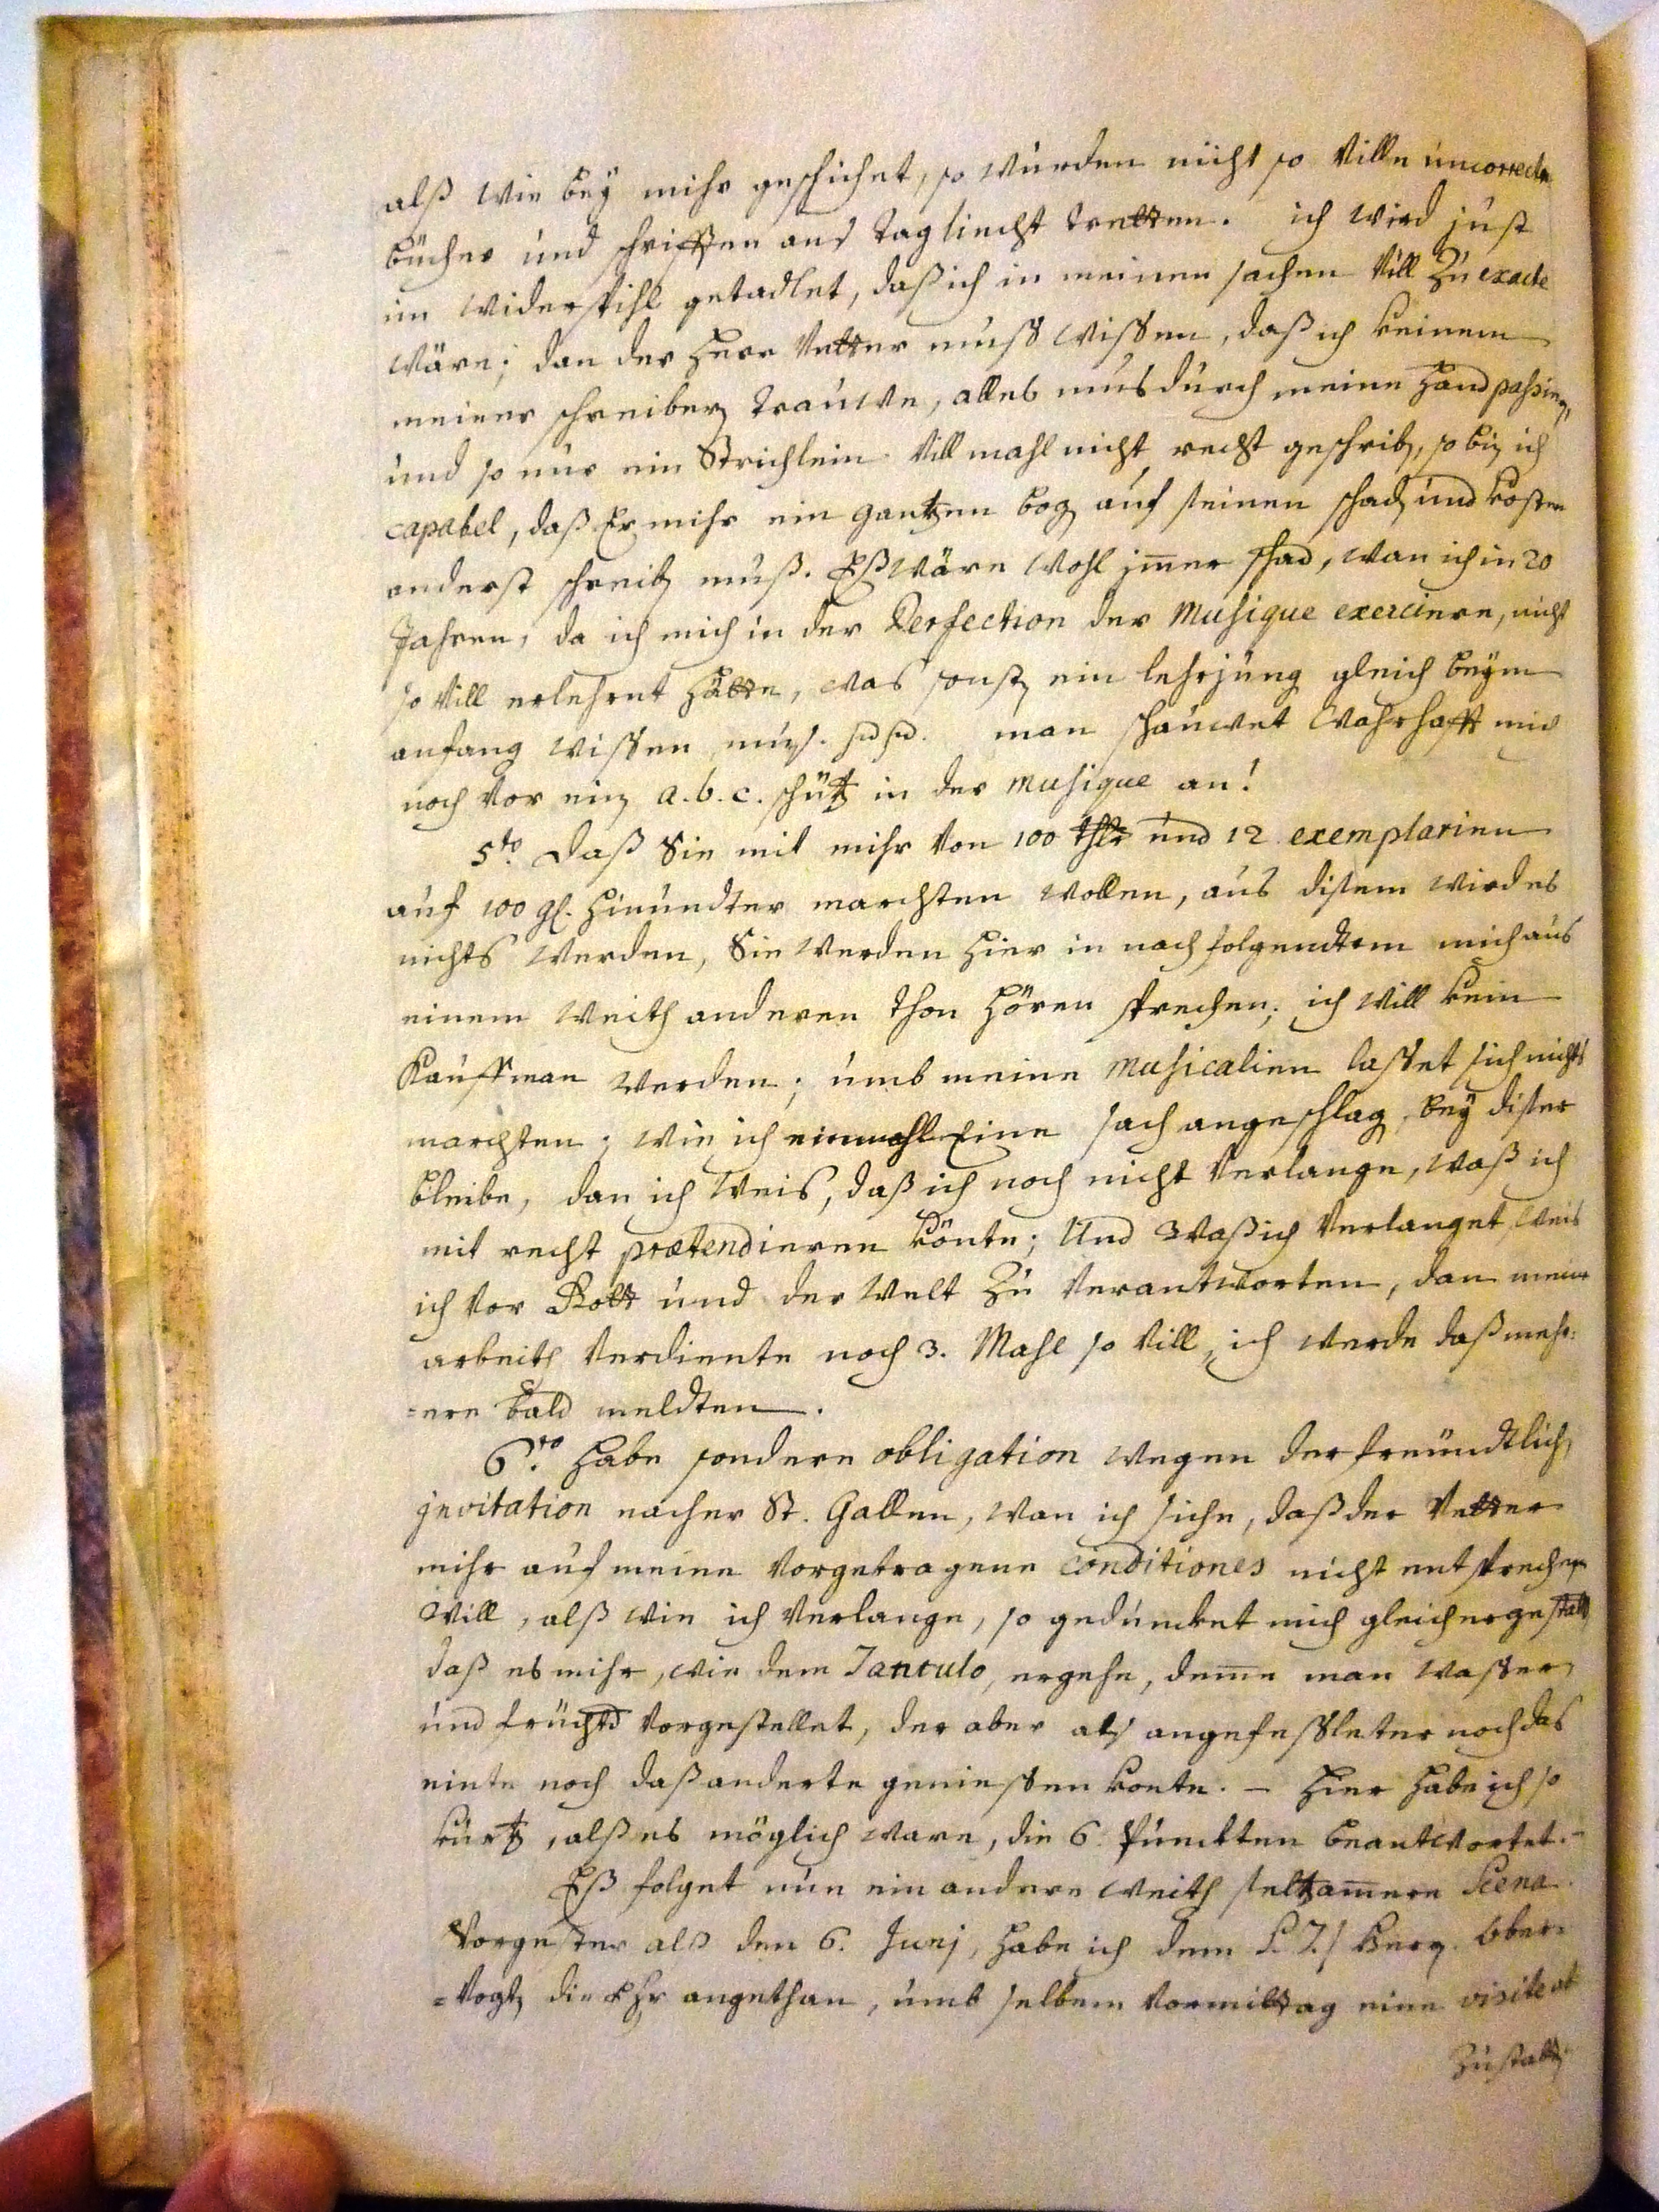 alß wie bey mihr geschichet, so wurden nicht so Ville uncorrecte
bücher und schrifften ans tagliecht tretten. ich wird just
im widerspihl getadlet, daß ich in meinen sachen Vill zu exacte
wäre; dan der Herr Vetter muß wissen, daß ich keinem
meiner schreiber trauwe, alles mus durch meine Hand passiren,
und so nur ein Strichlein Villmahl nicht recht geschriben, so bin ich
capabel, daß Er mihr ein gantzen bogen auf seinen schaden und kosten
anderst schreiben muß. Eß wäre wohl immer schad, wan ich in 20
Jahren, da ich mich in der Perfection der Musique exerciere, nicht
so Vill erlehrnt hätte, was sonsten ein lehrjung gleich beym
anfang wissen muß. man schauwet wahrhafft mich
noch vor ein a.b.c. schütz in der Musique an!
5to. Daß Sie mit mihr von 100 thlr und 12 exemplarien
auf 100 gl. hinundter marchten wollen, aus disem wird es
nichts werden, Sie werden hier in nachfolgendtem mich aus
einem weith anderen thon hören sprechen; ich will kein
Kauffman werden; umb meine Musicalien lasset sich nichts
marchten; wie ich einmahl Eine sach angeschlagen, bey diser
bleibe, dan ich weis, daß ich noch nicht Verlange, waß ich
mit recht prætendieren könte; Und Waß ich Verlanget, weis
ich vor Gott und der Welt zu Verantworten, dan meine
arbeith Verdiente noch 3. Mahl so Vill, ich werde daß meh=
=ere bald meldten.
6to. Habe sondere obligation wegen der freündtlichen
jnvitation nacher St. Gallen, wan ich sihe, daß der Vetter
mihr auf meine Vorgetragene conditiones nicht entsprechen
will, alß wie ich Verlange, so geduncket mich gleichergestalt
daß es mihr, wie dem Tantulo, ergehe, deme man wasser
und früchte Vorgestellet, der aber als angefessleter noch das
einte noch daß anderte geniessen konte. – Hier habe ich so
kurtz, alß es möglich ware, die 6. Puncten beantwortet. –
Eß folget nun ein andere weith seltzamere Scena.
Vorgester alß den 6. Junj, habe ich dem S. T. / Herren Ober=
=Vogten die Ehr angethan, umb selbem Vormittag eine visite ab
zustatten